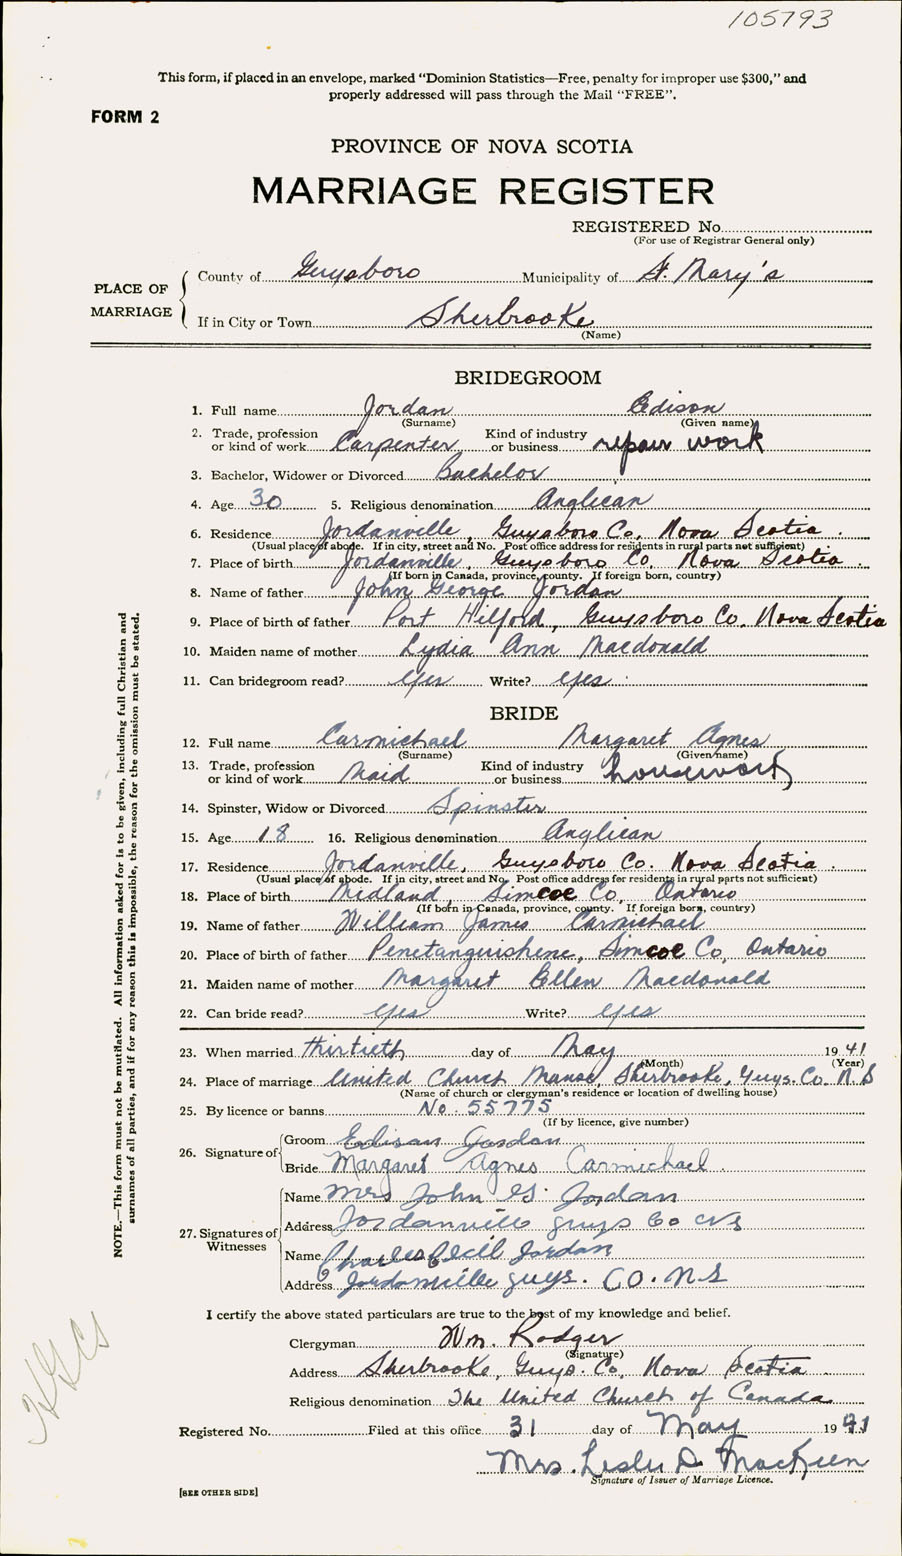 105793
This form, if placed in an envelope, marked “Dominion Statistics—Free, penalty for improper use $300,” and
properly addressed will pass through the Mail “FREE”.
FORM 2
PROVINCE OF NOVA SCOTIA
MARRIAGE REGISTER
REGISTERED No.
(For use of Registrar General only)
PLACE OF MARRIAGE
County of Guysboro Municipality of St. Mary's
If in City or Town Sherbrooke
(Name)
BRIDEGROOM
1. Full name Jordan Edison
(Surname) (Given name)
2. Trade, profession or kind of work Carpenter Kind of industry or business repair work
3. Bachelor, Widower or Divorced Bachelor
4. Age 30 5. Religious denomination Anglican
6. Residence Jordanville, Guysboro Co. Nova Scotia.
(Usual place of abode. If in city, street and No. Post office address for residents in rural parts not sufficient)
7. Place of birth Jordanville, Guysboro Co. Nova Scotia.
(If born in Canada, province, county. If foreign born, country)
8. Name of father John George Jordan
9. Place of birth of father Port Hilford, Guysboro Co. Nova Scotia
10. Maiden name of mother Lydia Ann Macdonald
11. Can bridegroom read? yes Write? yes
BRIDE
12. Full name Carmichael Margaret Agnes
(Surname) (Given name)
13. Trade, profession or kind of work Maid Kind of industry or business housework
14. Spinster, Widow or Divorced Spinster
15. Age 18 16. Religious denomination Anglican
17. Residence Jordanville, Guysboro Co. Nova Scotia.
(Usual place of abode. If in city, street and No. Post office address for residents in rural parts not sufficient)
18. Place of birth Midland, Simcoe Co, Ontario
(If born in Canada, province, county. If foreign born, country)
19. Name of father William James Carmichael
20. Place of birth of father Penetanguishene, Simcoe Co, Ontario
21. Maiden name of mother Margaret Ellen Macdonald
22. Can bride read? yes Write? yes
23. When married thirtieth day of May 1941
(Month) (Year)
24. Place of marriage United Church Manse, Sherbrooke, Guys. Co. N.S
(Name of church or clergyman's residence or location of dwelling house)
25. By licence or banns No. 55775
(If by licence, give number)
26. Signature of
Groom Edison Jordan
Bride Margaret Agnes Carmichael.
27. Signatures of Witnesses
Name Mrs John G. Jordan
Address Jordanville guys Co NS
Name Charles Cecil Jordan
Address Jordanville guys. CO. N.S
I certify the above stated particulars are true to the best of my knowledge and belief.
Clergyman Wm. Rodger
(Signature)
Address Sherbrooke, Guys. Co, Nova Scotia.
Religious denomination The United Church of Canada.
Registered No. Filed at this office 31 day of May 1941
Mrs. Leslie D MacKeen
Signature of Issuer of Marriage Licence.
[SEE OTHER SIDE]
NOTE.—This form must not be mutilated. All information asked for is to be given, including full Christian and
surnames of all parties, and if for any reason this is impossible, the reason for the omission must be stated.